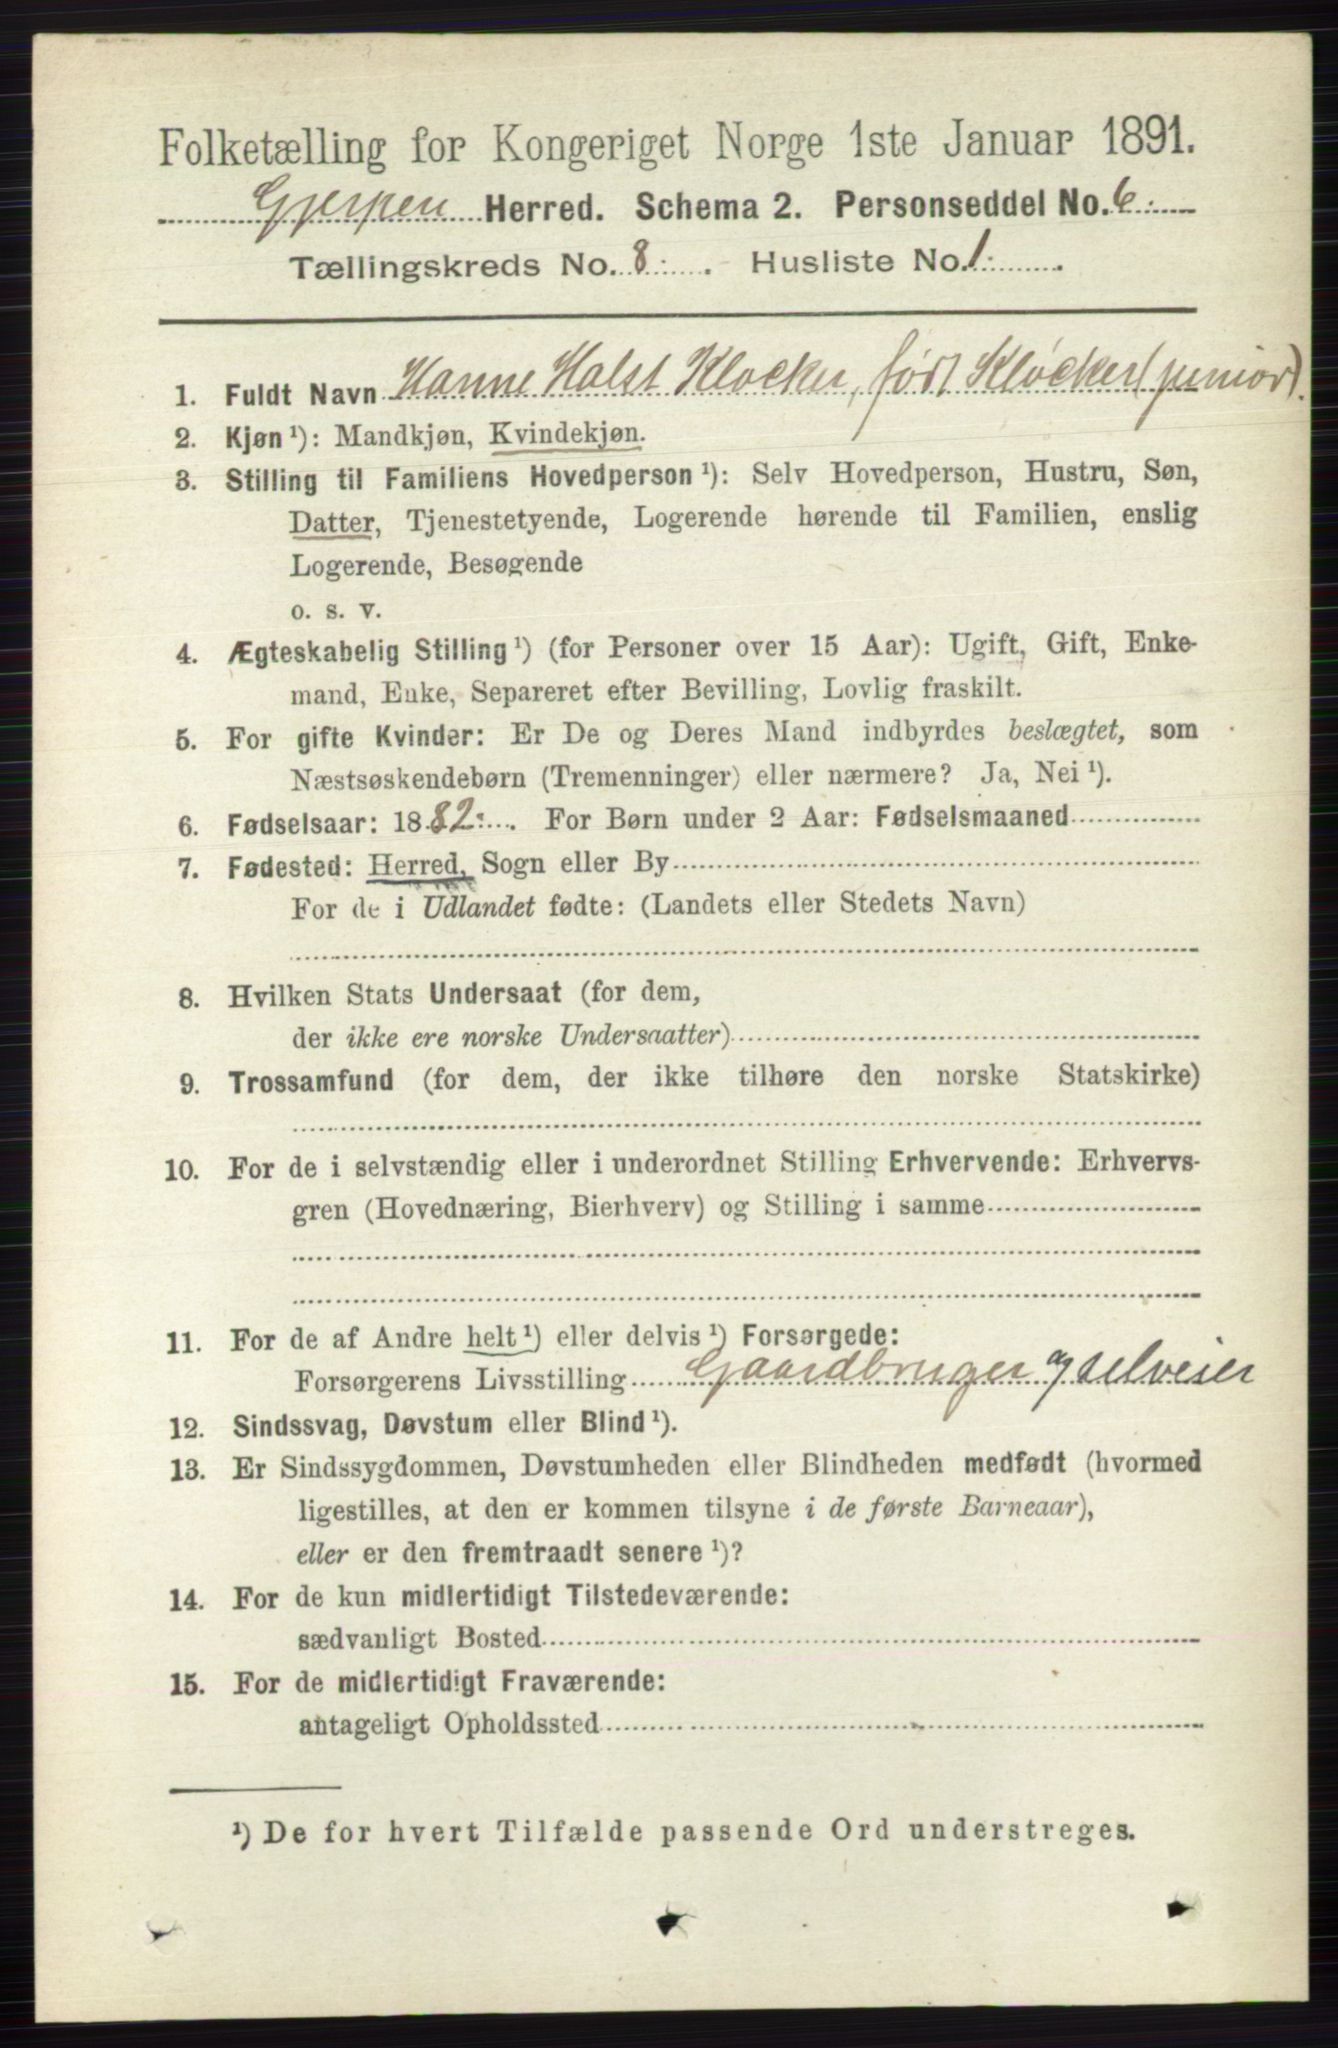 Folketælling for Kongeriget Norge 1ste Januar 1891.
Gjerpen Herred. Schema 2. Personseddel No. 6.
Tællingskreds No. 8. Husliste No. 1.
1. Fuldt Navn Hanne Holst Kløcker, født Kløcker (junior).
2. Kjøn ¹): Mandkjøn, Kvindekjøn.
3. Stilling til Familiens Hovedperson ¹): Selv Hovedperson, Hustru, Søn,
Datter, Tjenestetyende, Logerende hørende til Familien, enslig
Logerende, Besøgende
o. s. v.
4. Ægteskabelig Stilling ¹) (for Personer over 15 Aar): Ugift, Gift, Enke-
mand, Enke, Separeret efter Bevilling, Lovlig fraskilt.
5. For gifte Kvinder: Er De og Deres Mand indbyrdes beslægtet, som
Næstsøskendebørn (Tremenninger) eller nærmere? Ja, Nei ¹).
6. Fødselsaar: 1882. For Børn under 2 Aar: Fødselsmaaned
7. Fødested: Herred, Sogn eller By
For de i Udlandet fødte: (Landets eller Stedets Navn)
8. Hvilken Stats Undersaat (for dem,
der ikke ere norske Undersaatter)
9. Trossamfund (for dem, der ikke tilhøre den norske Statskirke)
10. For de i selvstændig eller i underordnet Stilling Erhvervende: Erhvervs-
gren (Hovednæring, Bierhverv) og Stilling i samme
11. For de af Andre helt ¹) eller delvis ¹) Forsørgede:
Forsørgerens Livsstilling Gaardbruger og selveier
12. Sindssvag, Døvstum eller Blind ¹).
13. Er Sindssygdommen, Døvstumheden eller Blindheden medfødt (hvormed
ligestilles, at den er kommen tilsyne i de første Barneaar),
eller er den fremtraadt senere ¹)?
14. For de kun midlertidigt Tilstedeværende:
sædvanligt Bosted
15. For de midlertidigt Fraværende:
antageligt Opholdssted
¹) De for hvert Tilfælde passende Ord understreges.